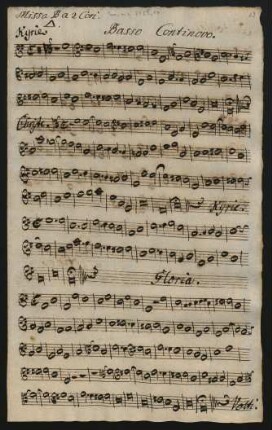 Missa B a 2 Cori.
Kyrie Basso Continovo.
Christe.
Kyrie.
Gloria.
Volti